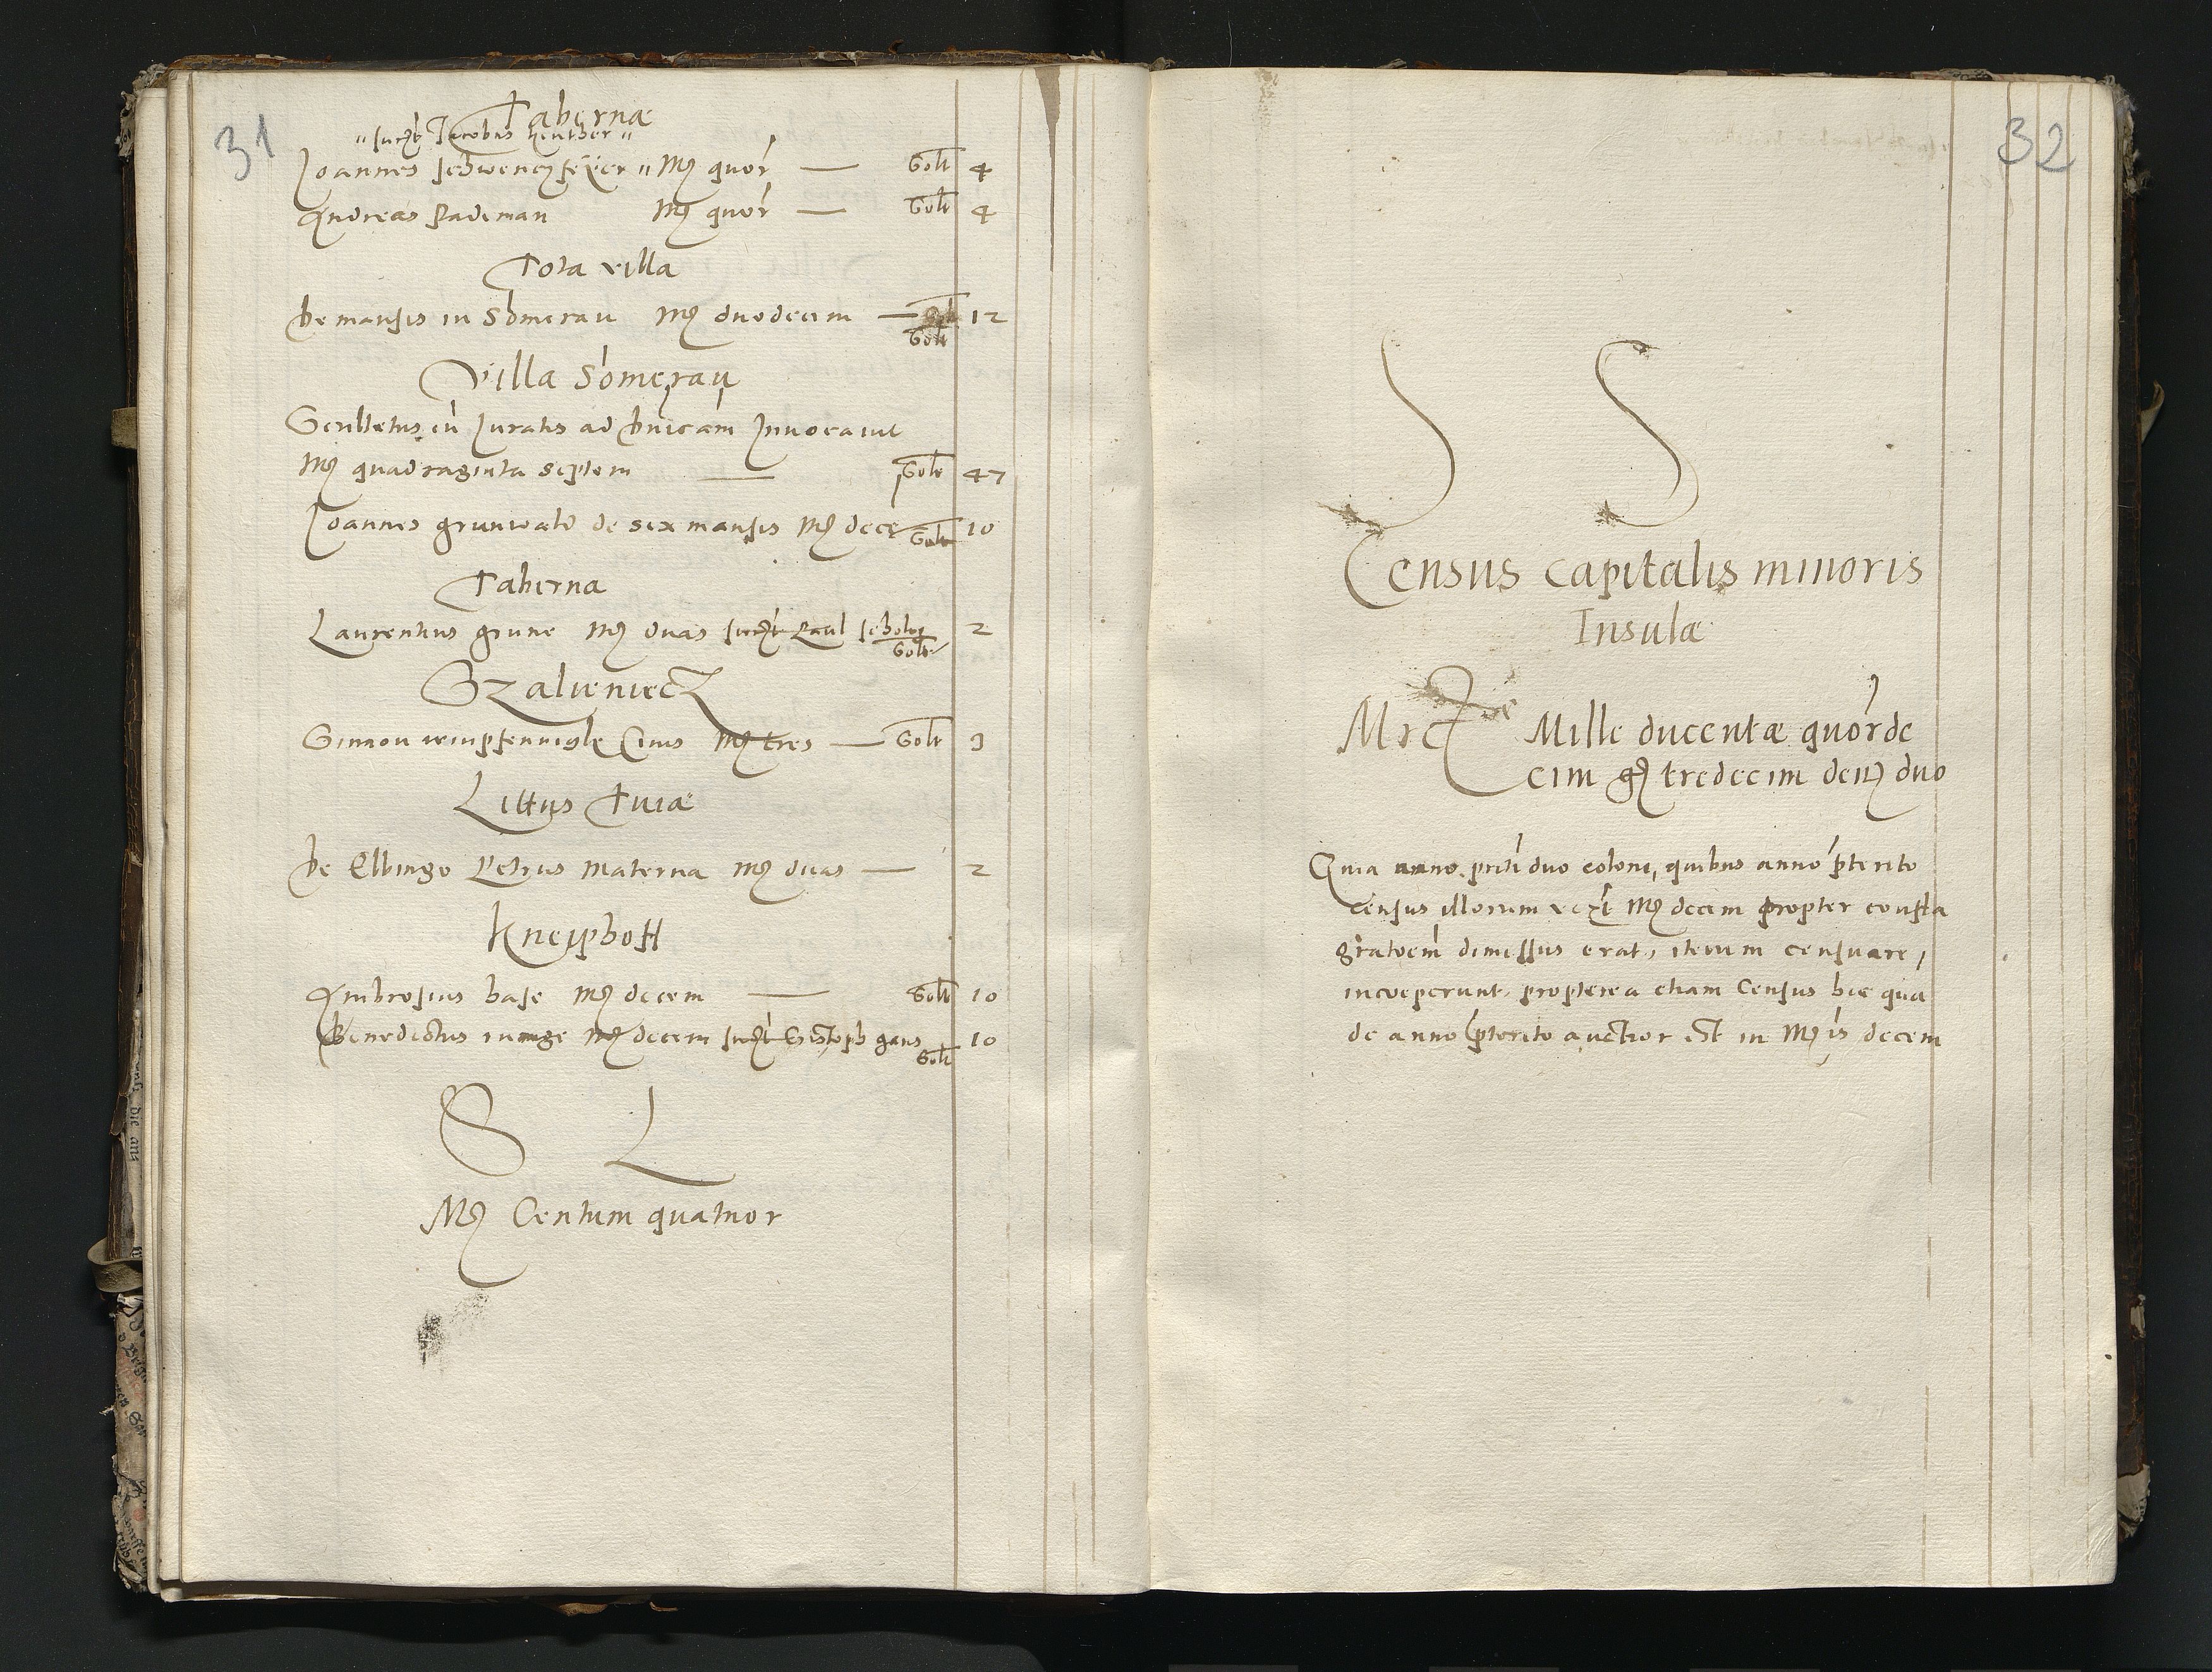 31
Tabernæ
"succ̄t Jacobus heuther"
Joannes schwenczfeÿer " Mꝝ quor — Solt 4
Andreas Radiman Mꝝ quor — Solt 4
Tota villa
De mansis in Somerau Mꝝ duodecim — Solt 12
Solt
Villa Somerau
Scultetus cū Juratis ad bnicam Innocavit
Mꝝ quadraginta septem — Solt 47
Joannes grunwald de sex mansis Mꝝ decē Solt 10
Taberna
Laurentius grune Mꝝ duas succ̄t Paul scholtz 2
Solt
Szalieniecz
Simon Civis Mꝝ tres — Solt 3
Littus Tuiæ
De Elbingo Petrus Materna Mꝝ duas — 2
Kneiphoff
Ambrosius base Mꝝ decem — Solt 10
Benedictus runge Mꝝ decem succ̄t Cristoph gans 10
Solt
S L
Mꝝ Centum quatuor
32
S S
Census capitalis minoris
Insulæ
Mrcæ Mille ducentæ quorde
cim gꝝ tredecim denꝝ duo
Quia anno pn̄ti duo coloni, quibus anno p̄terito
census illorum Mꝝ decem propter confla
gratoem̄ dimissus erat, iterum censuare,
incoeperunt, propterea etiam Census hic qua
de anno p̄terito auctior est in Mꝝis decem